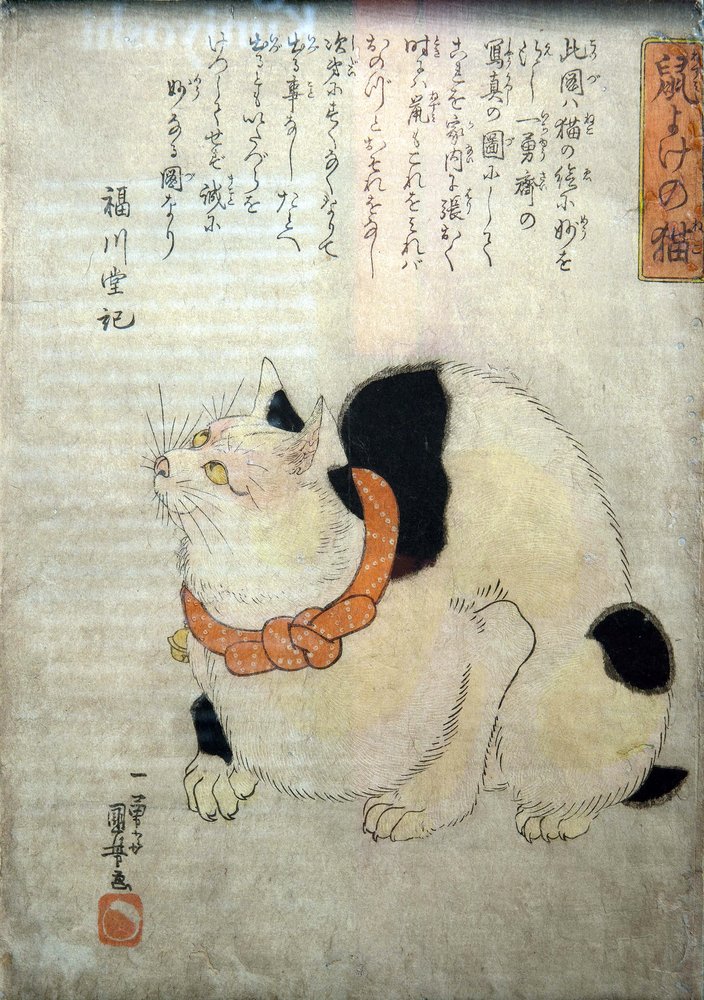 Kuniyoshi
鼠よけの猫
此図ハ猫の絵に妙を
得し一勇齋の
寫真の圖にして
これを家内に張おく
時ハ鼠もこれをみれバ
おのづとおそれをなし
次第にすくなくなりて
出る事なし たとへ
出るともいたづらを
けつしてせず誠に
妙なる圖なり
福川堂記
一勇斎
國芳画